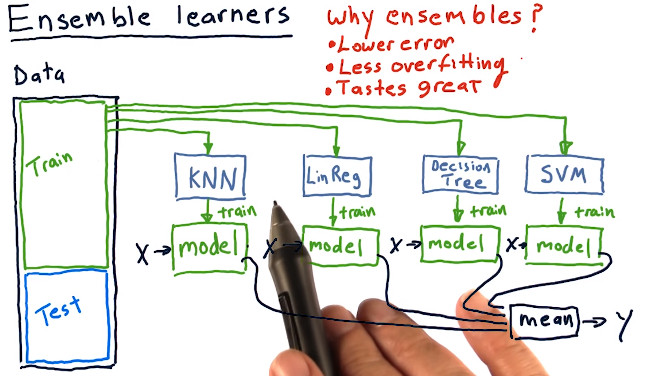 Ensemble learners
why ensembles?
•Lower error
•Less overfitting
•Tastes great
Data
Train
Test
KNN
LinReg
Decision
Tree
SVM
train
train
train
train
X
model
X
model
X
model
X
model
mean
Y